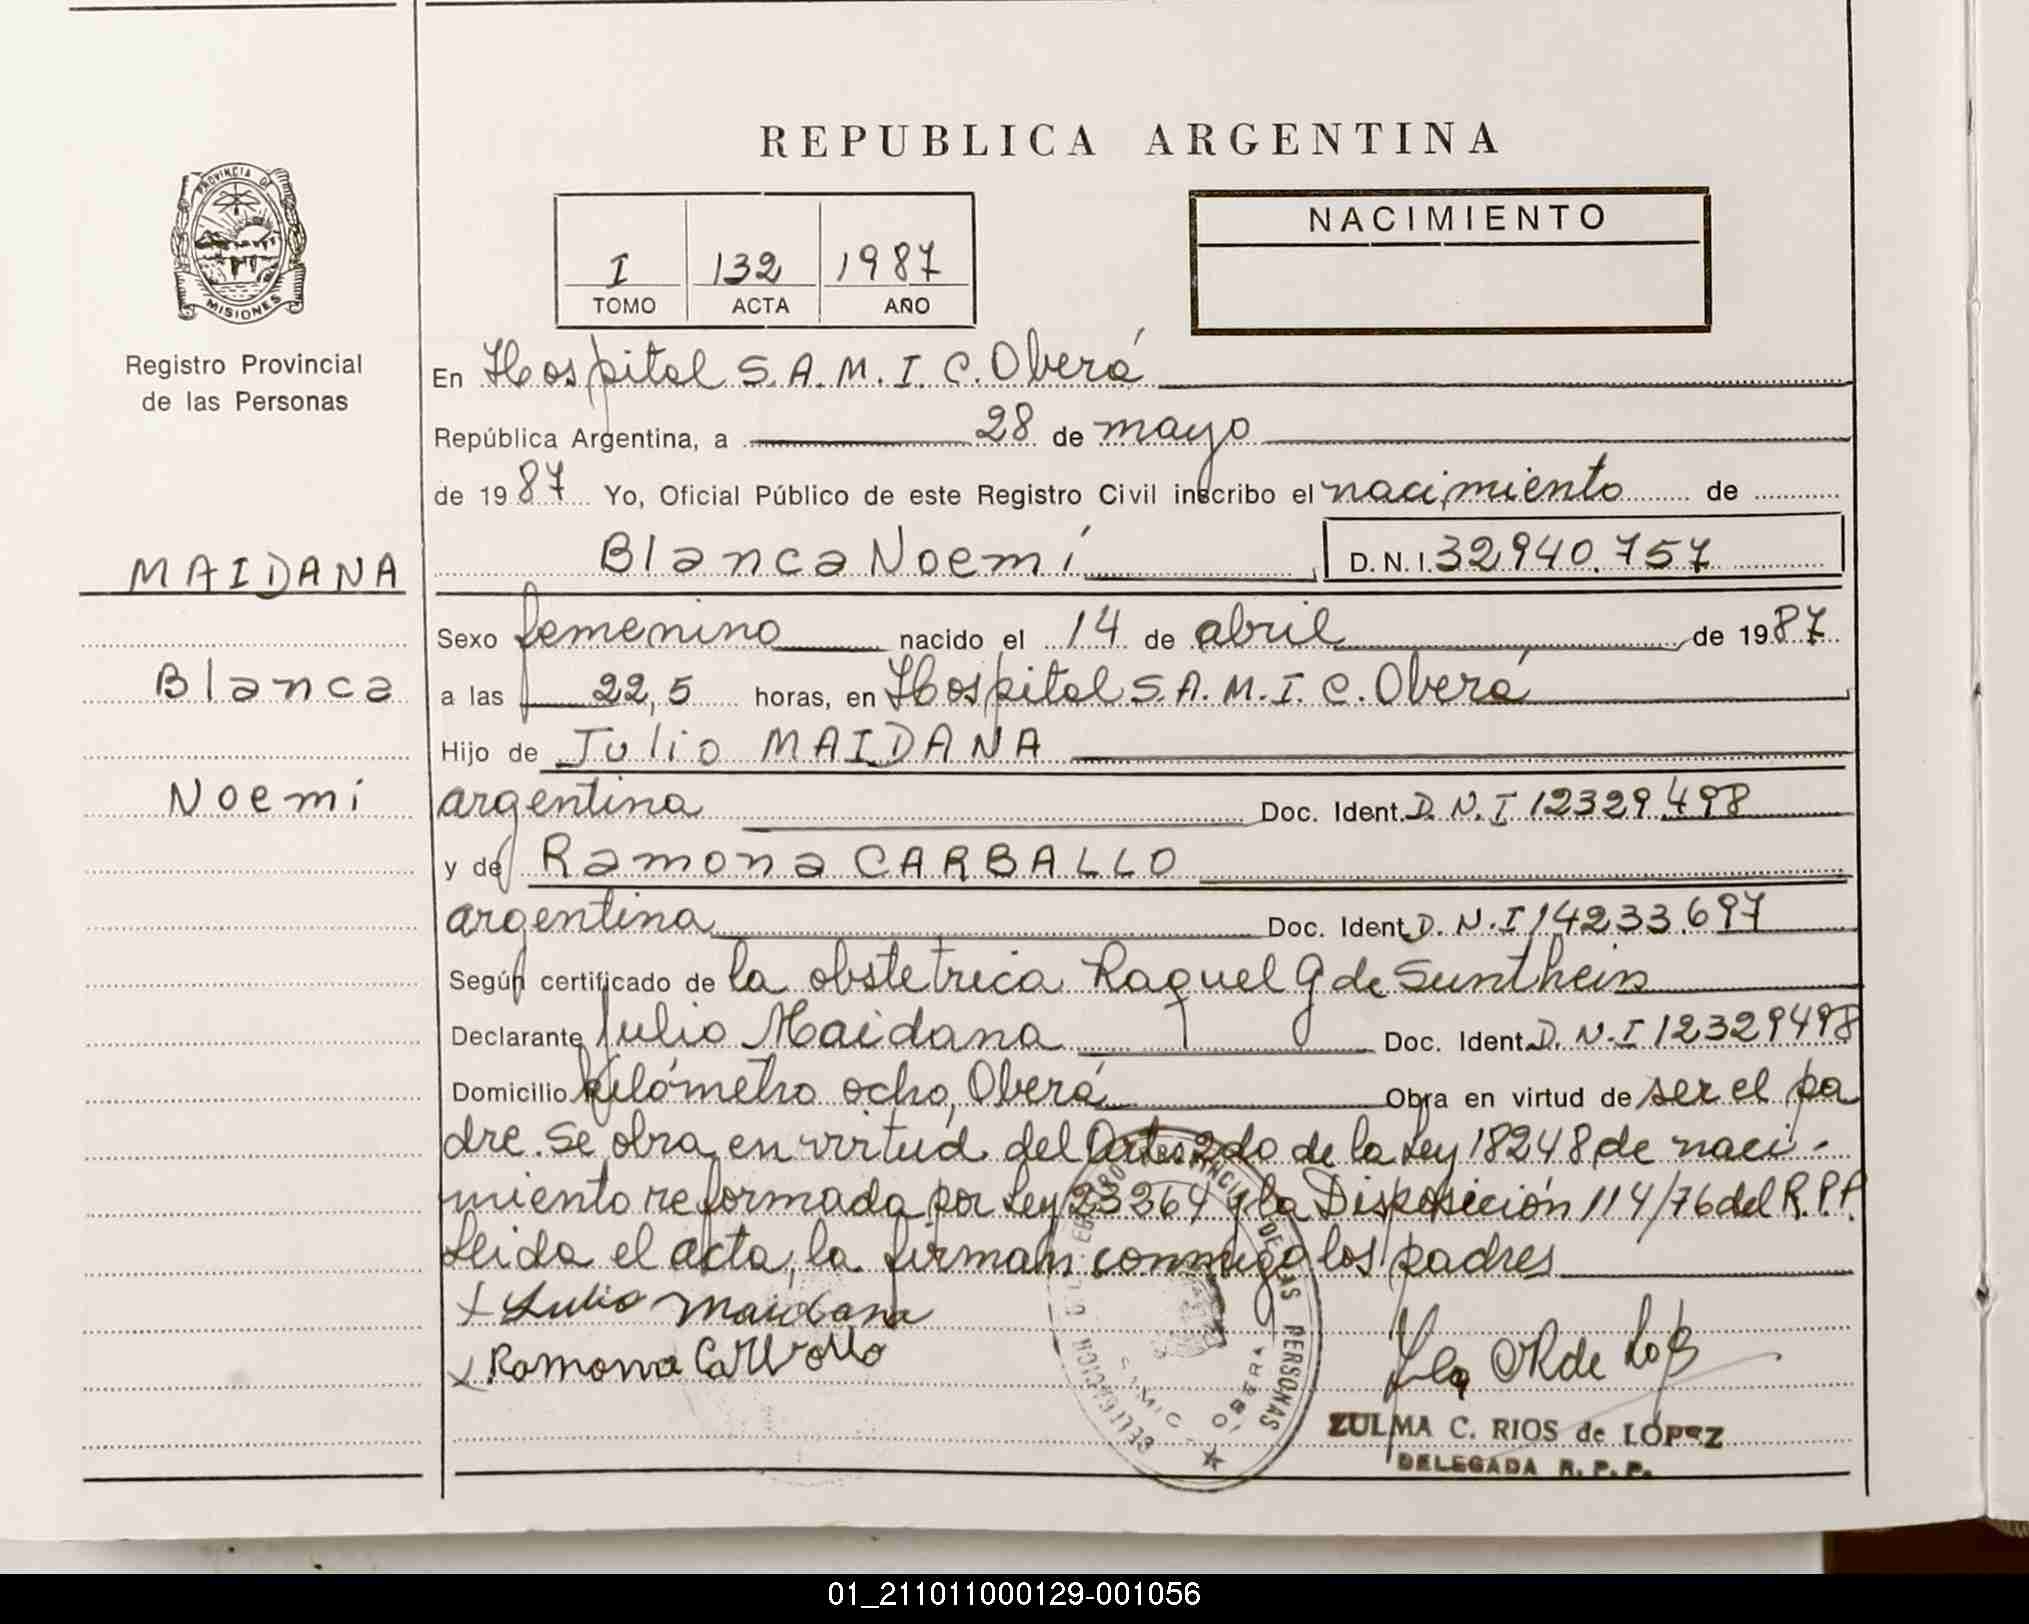 REPUBLICA ARGENTINA
PROVINCIA DE
MISIONES
Registro Provincial
de las Personas
MAIDANA
Blanca
Noemí
I 132 1987
TOMO ACTA AÑO
NACIMIENTO
En Hospital S.A.M.I.C. Oberá
República Argentina, a 28 de mayo
de 1987 Yo, Oficial Público de este Registro Civil inscribo el nacimiento de
Blanca Noemí D.N.I. 32940.757
Sexo femenino nacido el 14 de abril de 1987
a las 22,5 horas, en Hospital S.A.M.I.C. Oberá
Hijo de Julio MAIDANA
argentina Doc. Ident. D.N.I 12329.498
y de Ramona CARBALLO
argentina Doc. Ident. D.N.I 14233.697
Según certificado de la obstetrica Raquel G de Suntheim
Declarante Julio Maidana Doc. Ident. D.N.I 12329498
Domicilio kilómetro ocho, Oberá Obra en virtud de ser el pa
dre. Se obra en virtud del 2do de la Ley 18248 de naci-
miento reformada por Ley 23264 y la Disposición 114/76 del R.P.P.
Leida el acta, la firman conmigo los padres
x Julio Maidana
x Ramona Carballo
DE LAS PERSONAS
S.A.M.I.C. OBERA
ZULMA C. RIOS de LOPEZ
DELEGADA R.P.P.
01_211011000129-001056